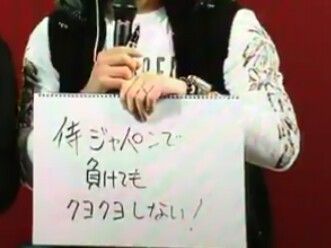 侍ジャパンで
負けても
クヨクヨしない!